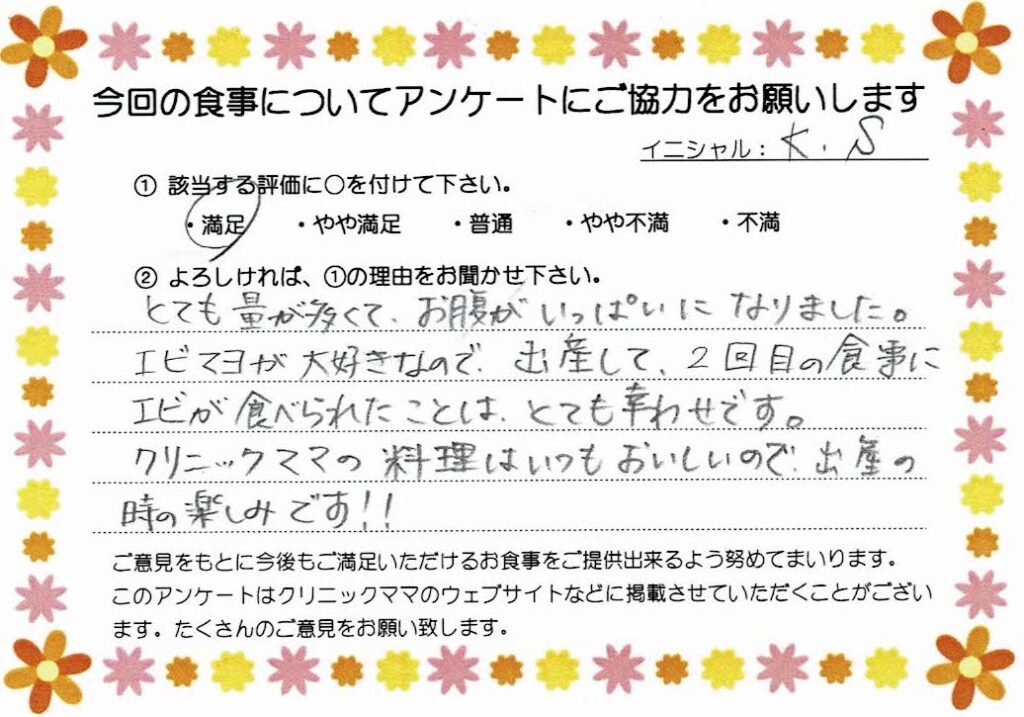 今回の食事についてアンケートにご協力をお願いします
イニシャル： K. S
① 該当する評価に〇を付けて下さい。
・満足 ・やや満足 ・普通 ・やや不満 ・不満
② よろしければ、①の理由をお聞かせ下さい。
とても量が多くて、お腹がいっぱいになりました。
エビマヨが大好きなので、出産して、2回目の食事に
エビが食べられたことは、とても幸わせです。
クリニックママの料理はいつもおいしいので、出産の
時の楽しみです!!
ご意見をもとに今後もご満足いただけるお食事をご提供出来るよう努めてまいります。
このアンケートはクリニックママのウェブサイトなどに掲載させていただくことがござい
ます。たくさんのご意見をお願い致します。